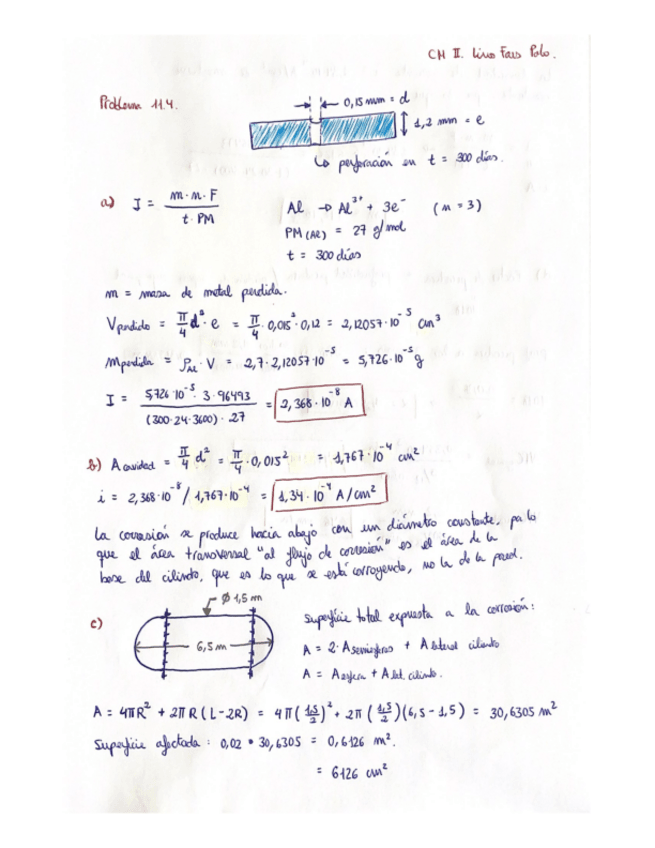 CM II. Lino Fars Polo.
Problema 11.4.
0,15 mm = d
1,2 mm = e
↳ perforación en t = 300 días.
a) I = m·n·F / t·PM
Al → Al³⁺ + 3e⁻ (n = 3)
PM(Al) = 27 g/mol
t = 300 días
m = masa de metal perdida.
Vperdido = π/4 d²·e = π/4 · 0,015² · 0,12 = 2,12057·10⁻⁵ cm³
mperdida = ρAl · V = 2,7 · 2,12057·10⁻⁵ = 5,726·10⁻⁵ g
I = 5,726·10⁻⁵ · 3 · 96493 / (300·24·3600) · 27 = 2,368·10⁻⁸ A
b) A cavidad = π/4 d² = π/4 · 0,015² = 1,767·10⁻⁴ cm²
i = 2,368·10⁻⁸ / 1,767·10⁻⁴ = 1,34·10⁻⁴ A/cm²
La corrosión se produce hacia abajo con un diámetro constante, por lo
que el área transversal "al flujo de corrosión" es el área de la
base del cilindro, que es lo que se está corroyendo, no la de la pared.
c)
Ø 1,5 m
6,5 m
Superficie total expuesta a la corrosión:
A = 2·Asemiesferas + Alateral cilindro
A = Aesfera + Alat. cilindro.
A = 4πR² + 2πR(L-2R) = 4π(1,5/2)² + 2π(1,5/2)(6,5 - 1,5) = 30,6305 m²
Superficie afectada: 0,02 · 30,6305 = 0,6126 m².
= 6126 cm²